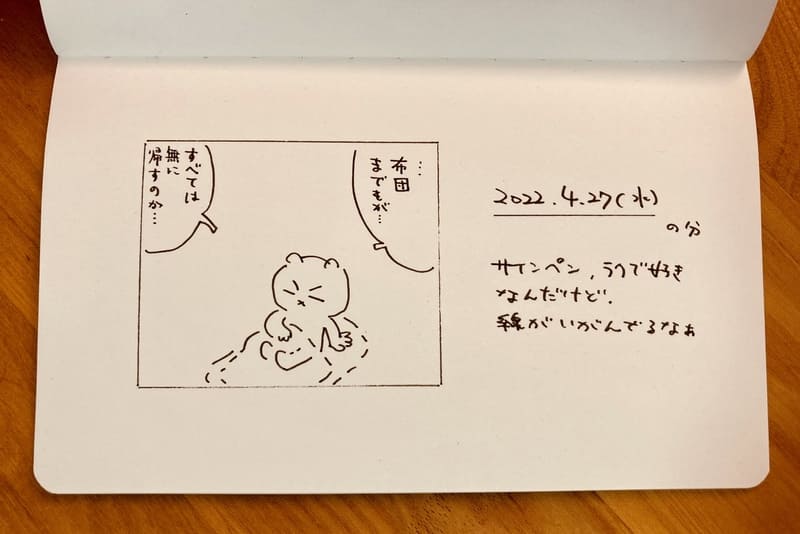 …
布団
までもが…
すべては
無に
帰すのか…
2022.4.27(水)
の分
サインペン、ラクで好き
なんだけど、
線がいがんでるなぁ